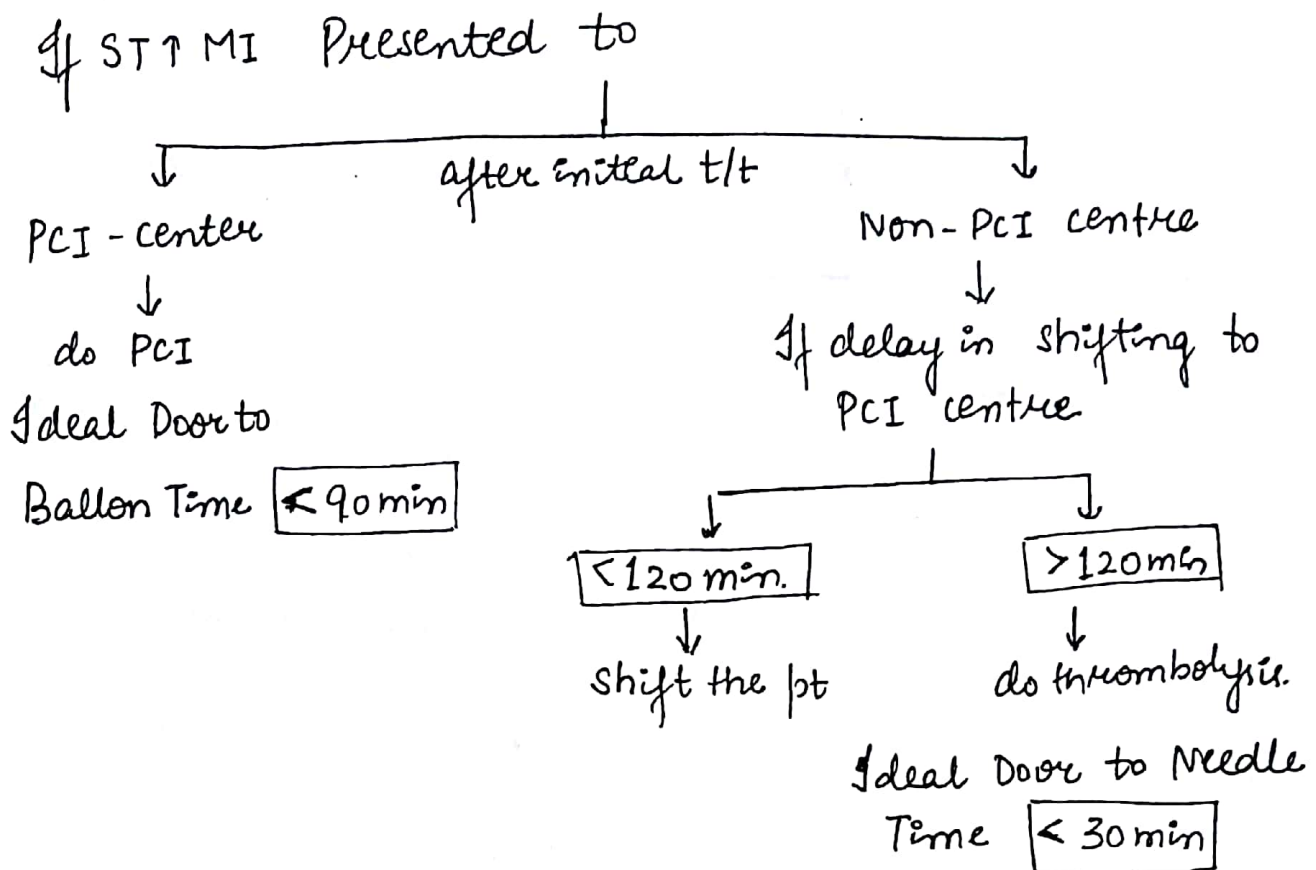 If ST↑ MI Presented to
after initial t/t
PCI-center
do PCI
Ideal Door to
Ballon Time < 90 min
Non-PCI centre
If delay in shifting to
PCI centre
< 120 min.
shift the pt
> 120 min
do thrombolysis.
Ideal Door to Needle
Time < 30 min